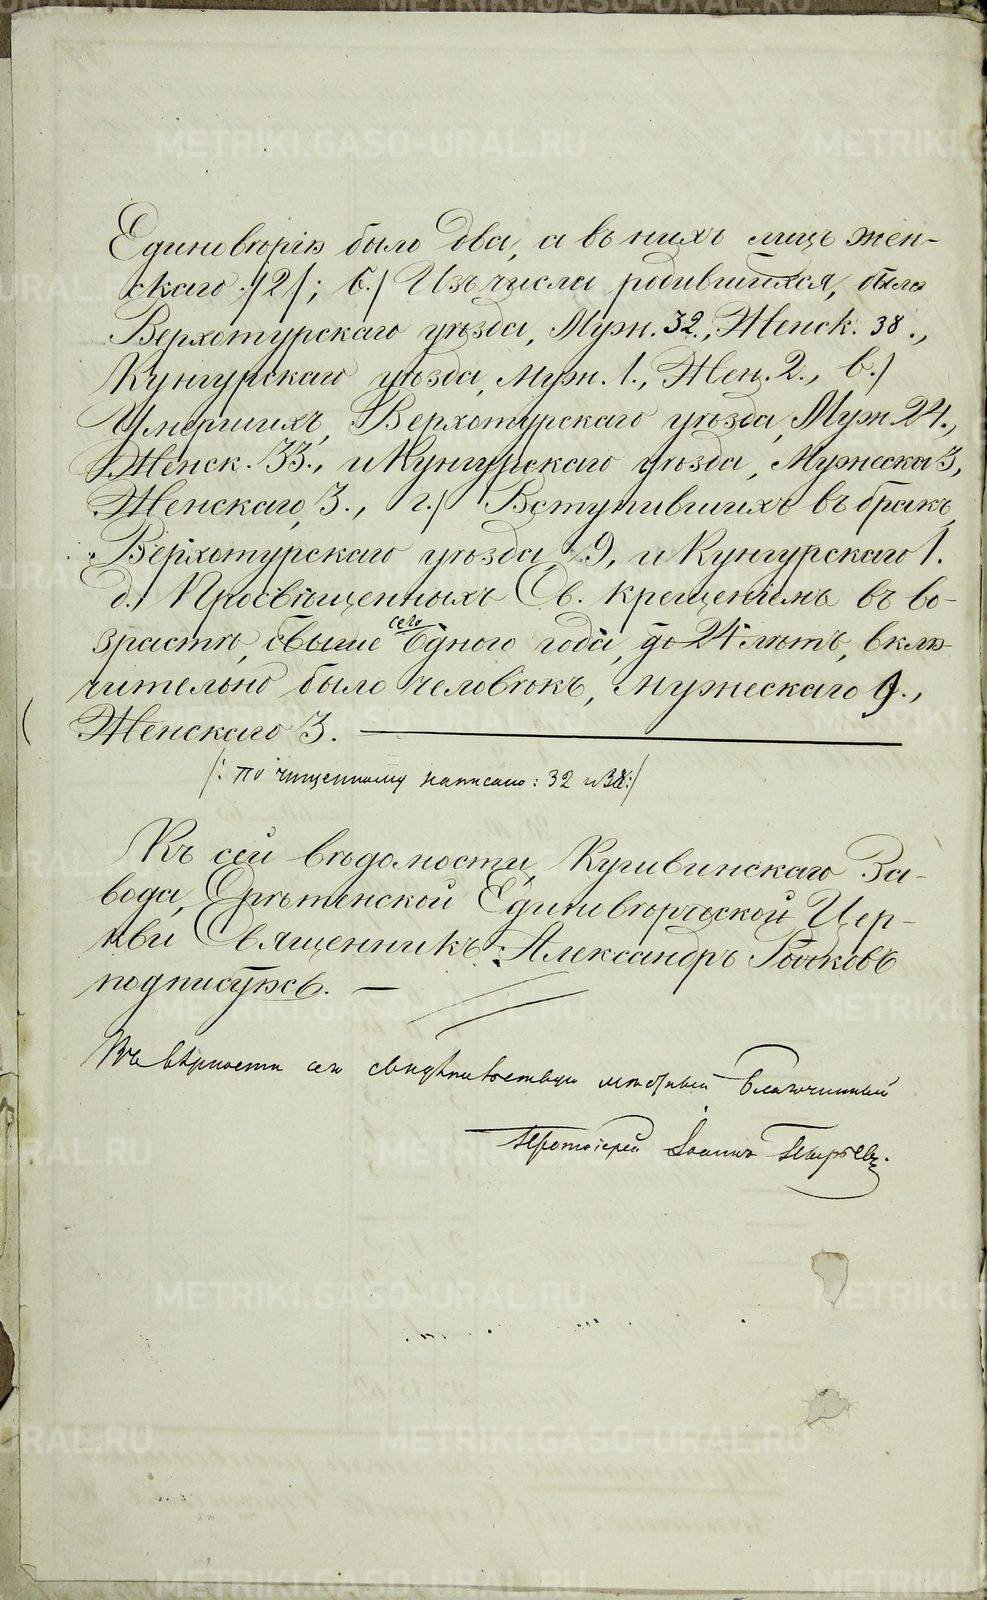 Единовѣрію было два, а въ нихъ лицъ жен-
скаго /2/; б./ Изъ числа родившихся, было
Верхотурскаго уѣзда, Муж. 32., Женск. 38.,
Кунгурскаго уѣзда, муж. 1., Жен. 2., в./
Умершихъ, Верхотурскаго уѣзда, Муж. 24.,
Женск. 33., и Кунгурскаго уѣзда, Мужеска 3,
Женскаго, 3., г./ Вступившихъ въ бракъ,
Верхотурскаго уѣзда, 29, и Кунгурскаго 1.
д./ Просвѣщенныхъ Св. крещеніемъ въ во-
зрастѣ, свыше сего Одного года, до 24 лѣтъ, вклю-
чительно было человѣкъ, мужескаго 9.,
Женскаго 3.
/: по чищенному написано: 32 и 38:/
Къ сей вѣдомости, Кушвинскаго За-
вода, Срѣтенской Единовѣрческой Цер-
кви Священникъ Александръ
подписуюсь. —
Въ вѣрности сего свидѣтельствую мѣстный Благочинный
Протоіерей Іоаннъ
METRIKI.GASO-URAL.RU